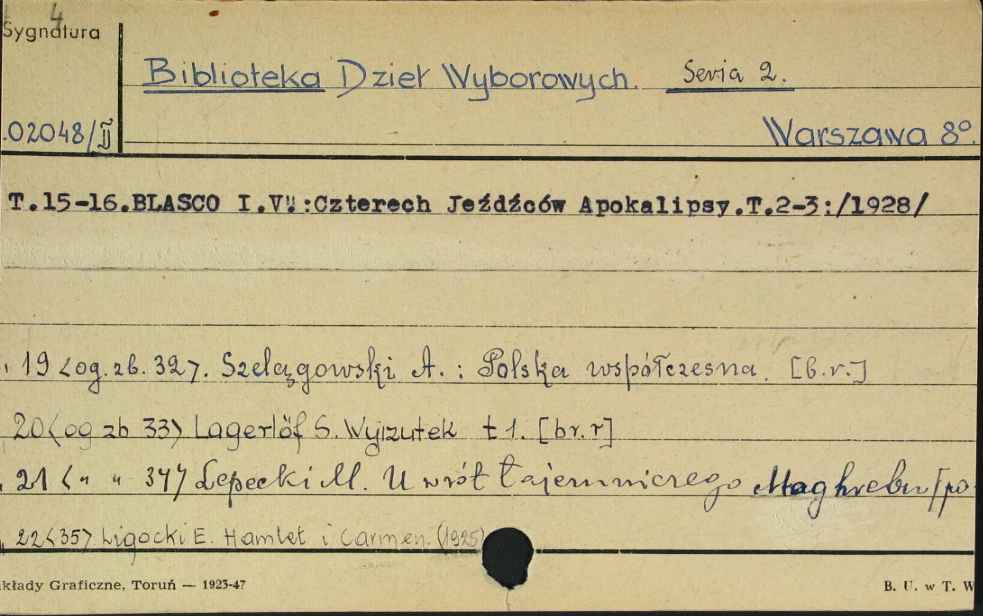 4
Sygnatura
Biblioteka Dzieł Wyborowych. Seria 2.
02048/II
Warszawa 8°.
T.15-16.BLASCO I.V.:Czterech Jeźdźców Apokalipsy.T.2-3:/1928/
19 <og. zb. 32>. Szelągowski A. : Polska współczesna. [b.r.]
20 <og zb 33> Lagerlöf S. Wyrzutek t 1. [b.r.]
21 <" " 34> Lepecki M. U wrót tajemniczego Maghrebu [po
22 <35> Ligocki E. Hamlet i Carmen. (1925)
kłady Graficzne, Toruń — 1923-47
B. U. w T. W